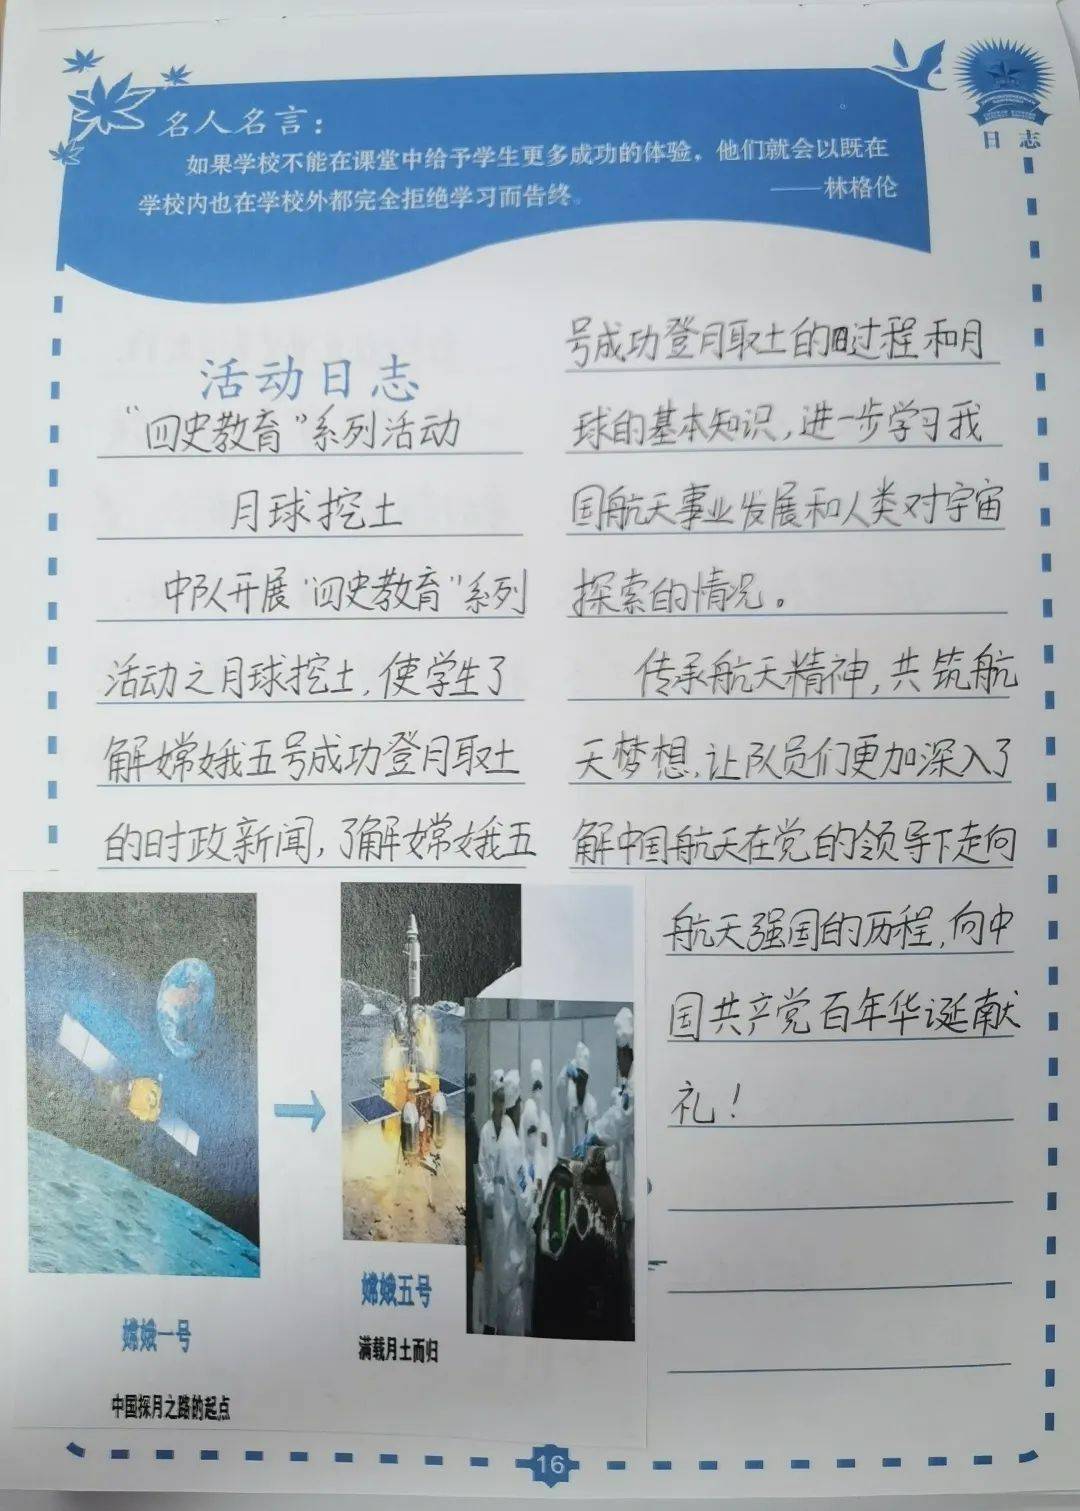 名人名言：
如果学校不能在课堂中给予学生更多成功的体验，他们就会以既在
学校内也在学校外都完全拒绝学习而告终。
——林格伦
日 志
活动日志
“四史教育”系列活动
月球挖土
中队开展“四史教育”系列
活动之月球挖土，使学生了
解嫦娥五号成功登月取土
的时政新闻，了解嫦娥五
号成功登月取土的过程和月
球的基本知识，进一步学习我
国航天事业发展和人类对宇宙
探索的情况。
传承航天精神，共筑航
天梦想，让队员们更加深入了
解中国航天在党的领导下走向
航天强国的历程，向中
国共产党百年华诞献
礼！
嫦娥一号
中国探月之路的起点
嫦娥五号
满载月土而归
16